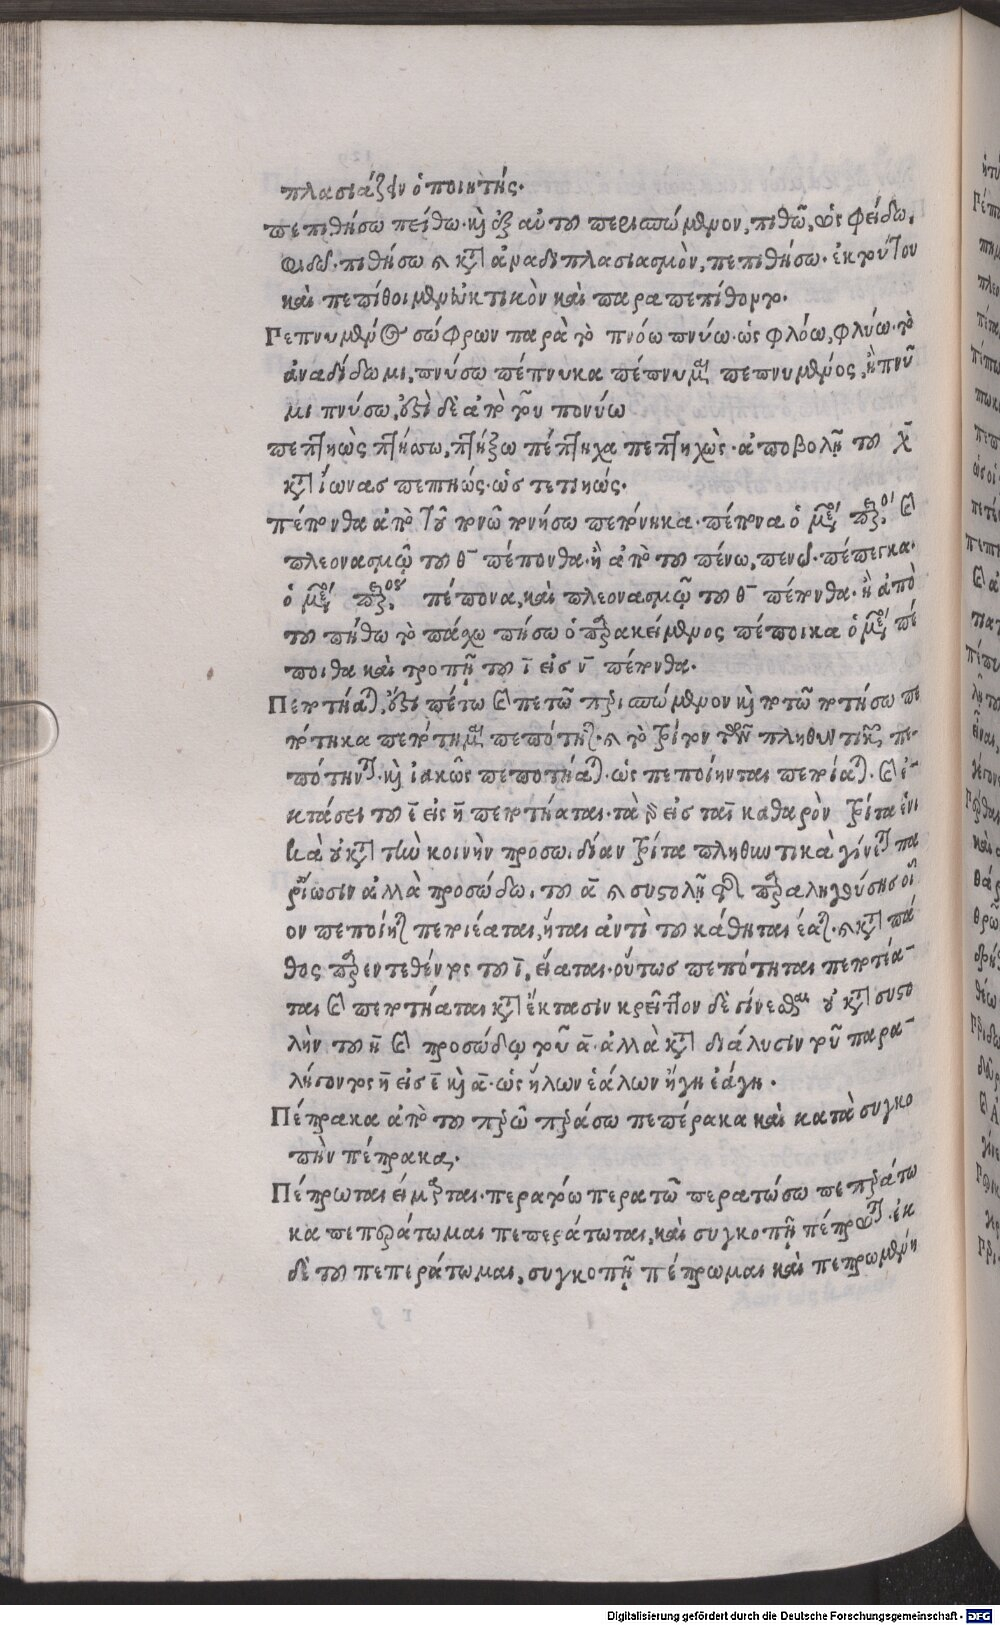 πλασιάζειν ὁ ποιητής.
πεπιθήσω πείθω. καὶ ἐξ αὐτοῦ περισπώμενον, πιθῶ, ὡς φείδω,
φιδῶ. πιθήσω καὶ κατὰ ἀναδιπλασιασμὸν, πεπιθήσω. ἐκ τούτου
καὶ πεπίθοιμεν εὐκτικὸν καὶ παρα πεπίθοντο.
Πεπνυμένος σώφρων παρὰ τὸ πνόω πνύω. ὡς φλόω, φλύω. τὸ
ἀναδίδωμι, πνύσω πέπνυκα πέπνυμαι πεπνυμένος, ἢ πνῦ
μι πνύσω, οὐχὶ δὲ ἀπὸ τοῦ πονύω
πεπτηὼς πτήσω, πτήξω πέπτηχα πεπτηχὼς. ἀποβολῇ τοῦ χ̄
κατὰ ἴωνας πεπτηώς. ὡς τετιηώς.
πέπονθα ἀπὸ τοῦ πονῶ πονήσω πεπόνηκα. πέπονα ὁ μέσος παρακείμενος. καὶ
πλεονασμῷ τοῦ θ̄ πέπονθα. ἢ ἀπὸ τοῦ πένω, πενῶ. πέπεγκα.
ὁ μέσος παρακείμενος πέπονα, καὶ πλεονασμῷ τοῦ θ̄ πέπονθα. ἢ ἀπὸ
τοῦ πήθω τὸ πάχω πήσω ὁ παρακείμενος πέποικα ὁ μέσος πέ
ποιθα καὶ τροπῇ τοῦ ῑ εἰς ν̄ πέπονθα.
Πεποτήαται, ἔστι πέτω καὶ πετῶ περισπώμενον καὶ ποτῶ ποτήσω πε
πότηκα πεπότημαι πεπότηται. καὶ τὸ τρίτον τῶν πληθυντικῶν πε-
πότηνται. καὶ ἰακῶς πεποτήαται. ὡς πεποίηνται
κτάσει τοῦ ῑ εἰς η̄ πεποτήαται. τὰ δὲ εἰς ται καθαρὸν τρίτα ἑνι
κὰ οὐ κατὰ τὴν κοινὴν προσῳδίαν τρίτα πληθυντικὰ γίνεται πα
ρ' ἴωσιν ἀλλὰ προσόδῳ. τοῦ ᾱ καὶ συστολῇ τῆς παραληγούσης οἷ
ον πεποίηται πεποιέαται, ἧται ἀντὶ τοῦ κάθηται ἕαται. καὶ κατὰ πά
θος παρεντεθέντος τοῦ ῑ, εἵαται. οὕτως πεπότηται πεποτέα-
ται καὶ πεποτήαται κατὰ ἔκτασιν κρεῖττον δὲ γίνεσθαι οὐ κατὰ συστο
λὴν τοῦ η̄ καὶ προσώδῳ τοῦ ᾱ. ἀλλὰ κατὰ διάλυσιν τοῦ παρα-
λήγοντος η̄ εἰς ε̄ καὶ ᾱ. ὡς ἥλων ἑάλων ἤγη ἐάγη.
Πέπρακα ἀπὸ τοῦ περῶ περάσω πεπέρακα καὶ κατὰ συγκο
πὴν πέπρακα.
Πέπρωται εἵμαρται. περατόω περατῶ περατώσω πεπεράτω
κα πεπεράτωμαι πεπεράτωται, καὶ συγκοπῇ πέπρωται. ἐκ
δὲ τοῦ πεπεράτωμαι, συγκοπῇ πέπρωμαι καὶ πεπρωμένη
Digitalisierung gefördert durch die Deutsche Forschungsgemeinschaft - DFG